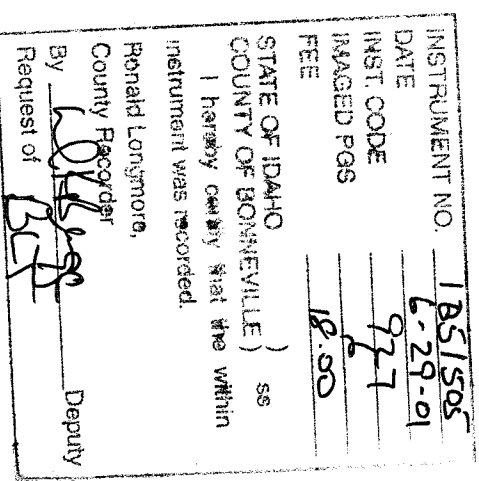 INSTRUMENT NO. 1051505
DATE 6-29-01
INST. CODE 927
IMAGED PGS 6
FEE 18.00
STATE OF IDAHO )
COUNTY OF BONNEVILLE ) ss
I hereby certify that the within
instrument was recorded.
Ronald Longmore,
County Recorder
By Deputy
Request of